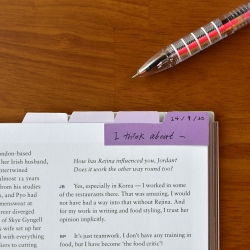 24/9/20
I think about –
London-based
her Irish husband,
entertained
almost 12 years
from his studies
s, and Pyo had
menswear at
career diverged
of Skye Gyngell
wife set up her
d with everything
ars to cutting
How has Rejina influenced you, Jordan?
Does it work the other way round too?
JB Yes, especially in Korea — I worked in some
of the restaurants there. That was amazing, I would
not have had a way into that without Rejina. And
for my work in writing and food styling, I trust her
opinion implicitly.
RP It's just teamwork. I don't have any training in
food, but I have become 'the food critic'!